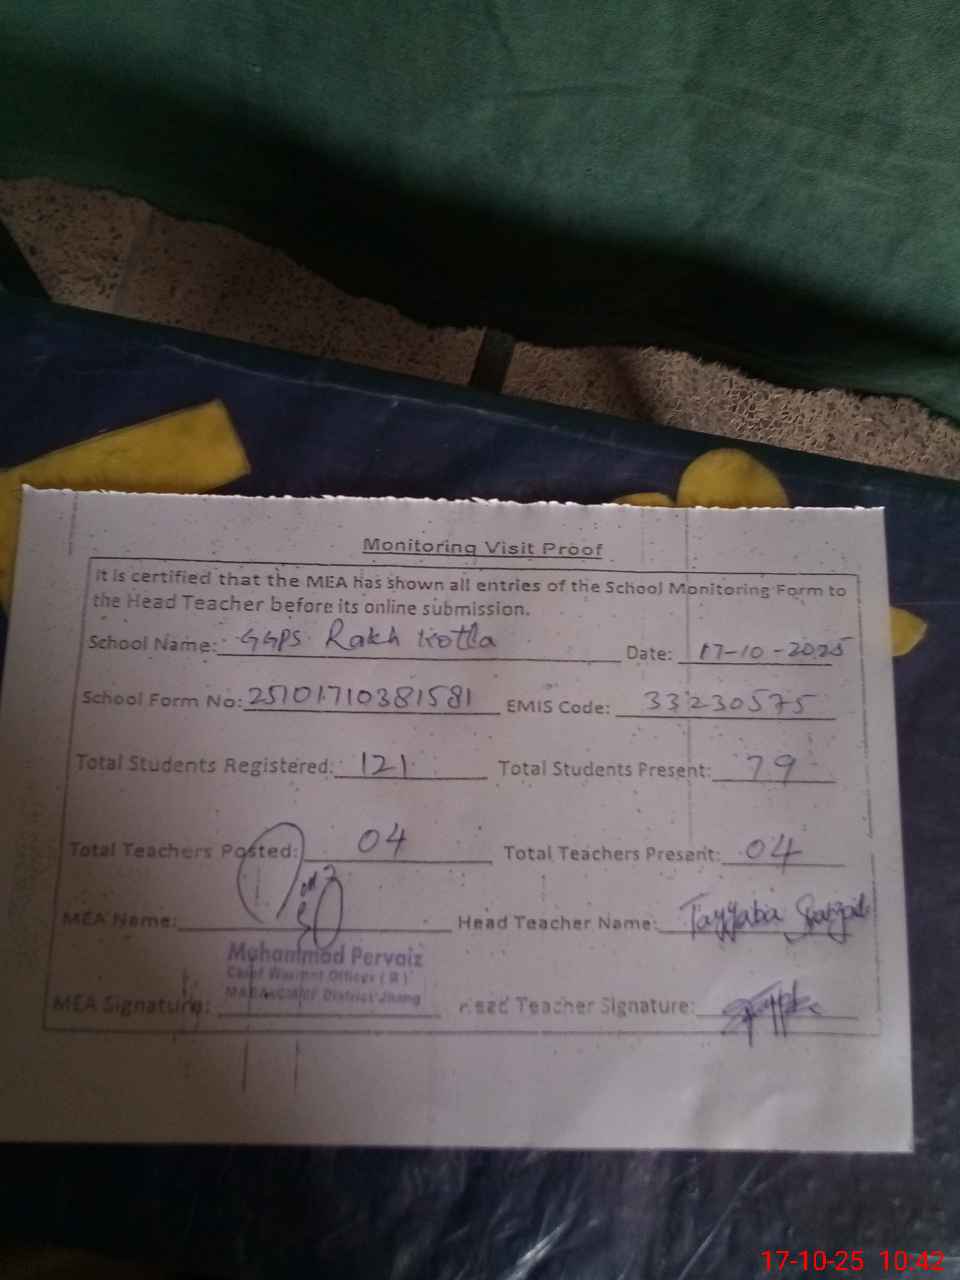 Monitoring Visit Proof
It is certified that the MEA has shown all entries of the School Monitoring Form to
the Head Teacher before its online submission.
School Name: GGPS Rakh Kotla Date: 17-10-2025
School Form No: 25101710381581 EMIS Code: 33230575
Total Students Registered: 121 Total Students Present: 79
Total Teachers Posted: 04 Total Teachers Present: 04
MEA Name: Head Teacher Name: Tayyaba
Muhammad Pervaiz
Chief Warrant Officer (R)
District Jhang
MEA Signature: Head Teacher Signature:
17-10-25 10:42